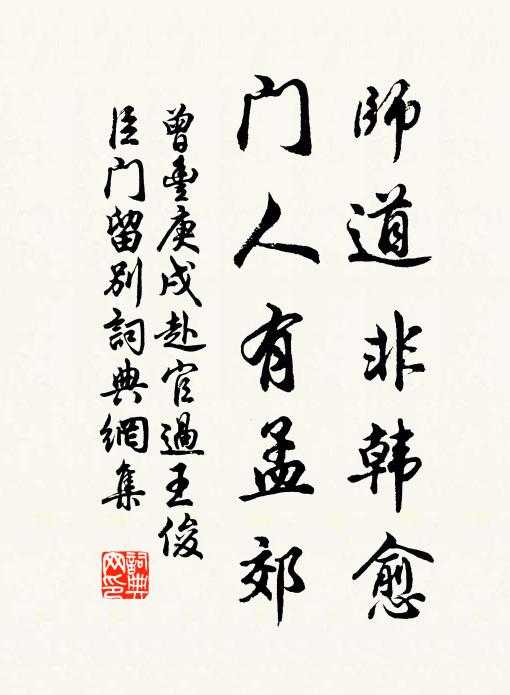 師道非韩愈
门人有孟郊
曾豊庚戌赴官過王俊
臣门留别詞典網集
詞典网印